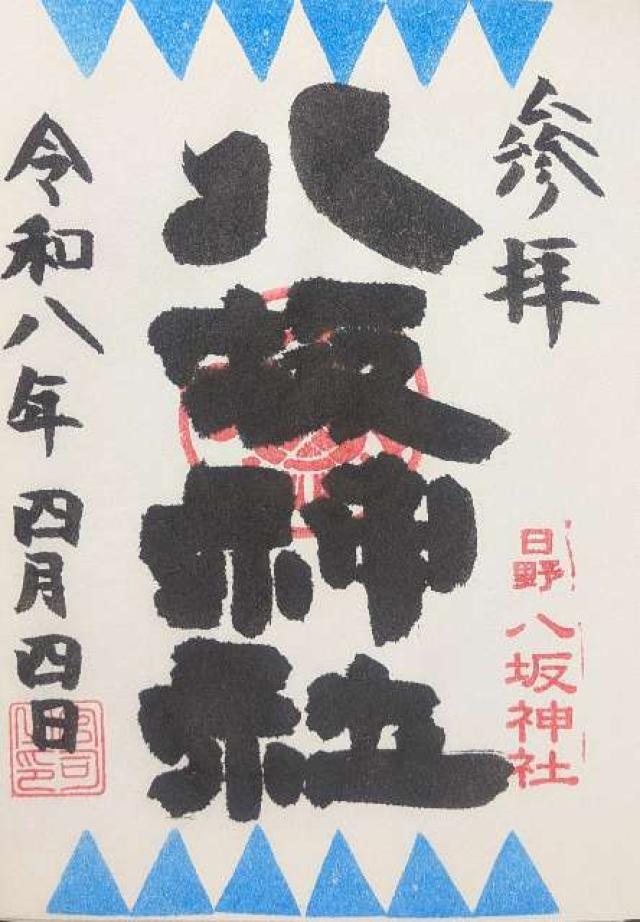 参拝
日野
八坂神社
八坂神社
令和八年四月四日